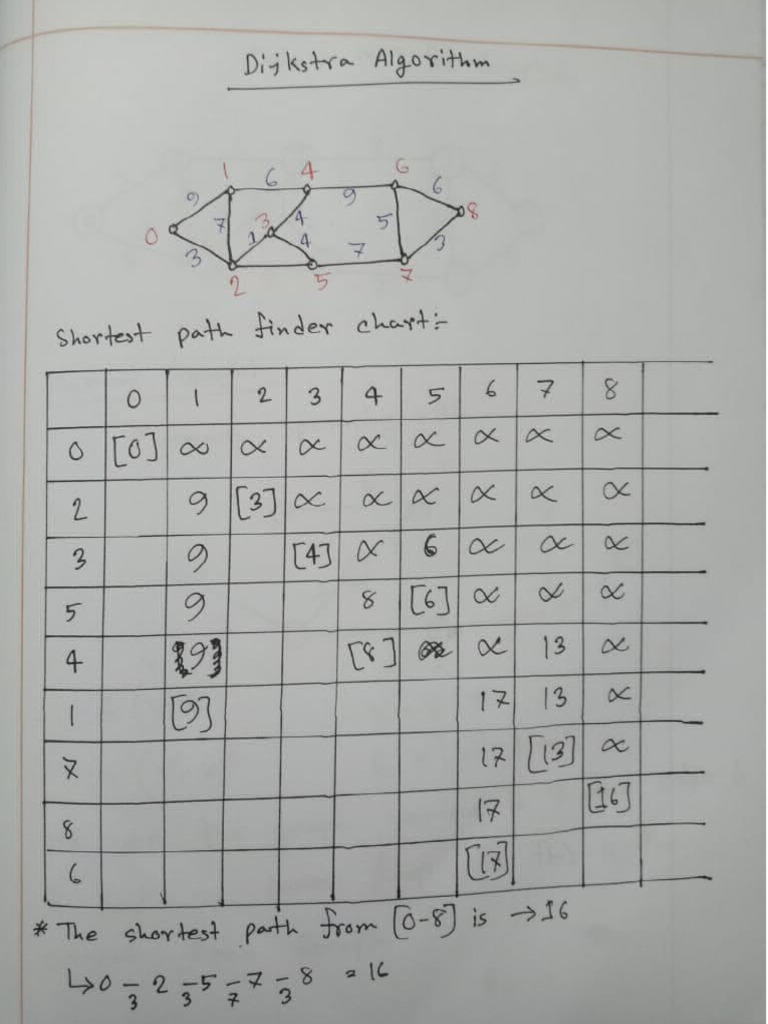 Dijkstra Algorithm
1 6 4 6
9 9 6
0 7 3 4 5 8
3 1 4 7 3
2 5 7
Shortest path finder chart:-
0 1 2 3 4 5 6 7 8
0 [0] ∞ ∝ ∝ ∝ ∝ ∝ ∝ ∝
2 9 [3] ∝ ∝ ∝ ∝ ∝ ∝
3 9 [4] ∝ 6 ∝ ∝ ∝
5 9 8 [6] ∝ ∝ ∝
4 [9] [8] ∝ 13 ∝
1 [9] 17 13 ∝
7 17 [13] ∝
8 17 [16]
6 [17]
* The shortest path from [0-8] is →16
↳0 – 2 – 5 – 7 – 8 = 16
3 3 7 3